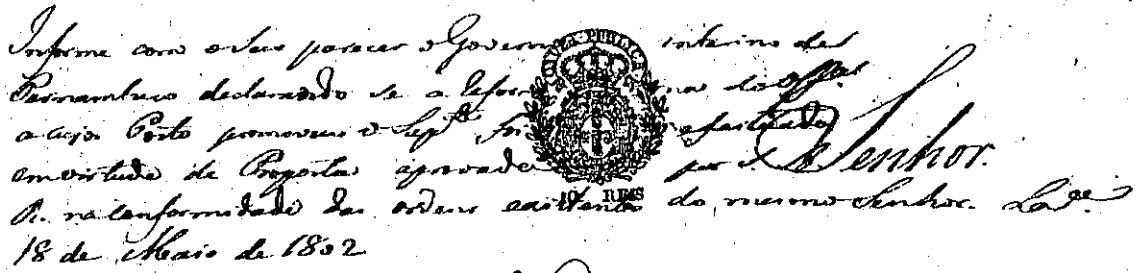 Informe com o seu parecer o Governo interino de
Pernambuco declarando se a Refor dos Offes
a cujo Posto promoveu o Suppe foi
em virtude de Proposta aprovada por S. A.
Senhor.
R. na conformidade das ordens existentes do mesmo Senhor.
18 de Maio de 1802
CAUZA PUBLICA
10 REIS